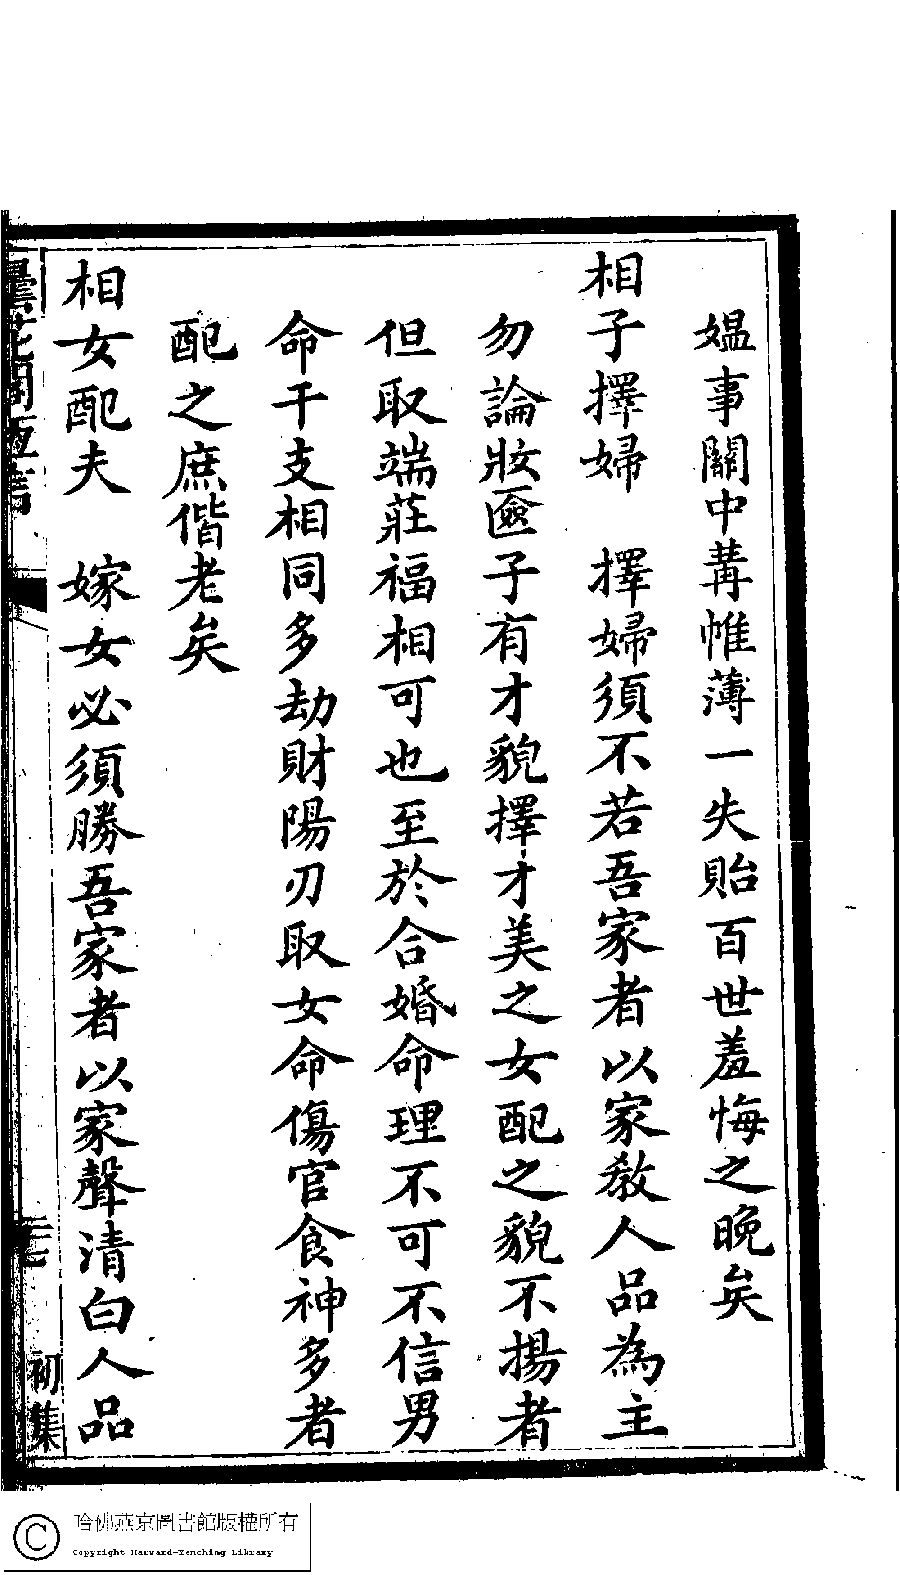 媪事關中冓帷薄一失貽百世羞悔之晚矣
相子擇婦　擇婦須不若吾家者以家教人品為主
勿論妝匳子有才貌擇才美之女配之貌不揚者
但取端莊福相可也至於合婚命理不可不信男
命干支相同多劫財陽刃取女命傷官食神多者
配之庶偕老矣
相女配夫　嫁女必須勝吾家者以家聲清白人品
曇花閣恆言
初集
哈佛燕京圖書館版權所有
Copyright Harvard-Yenching Library